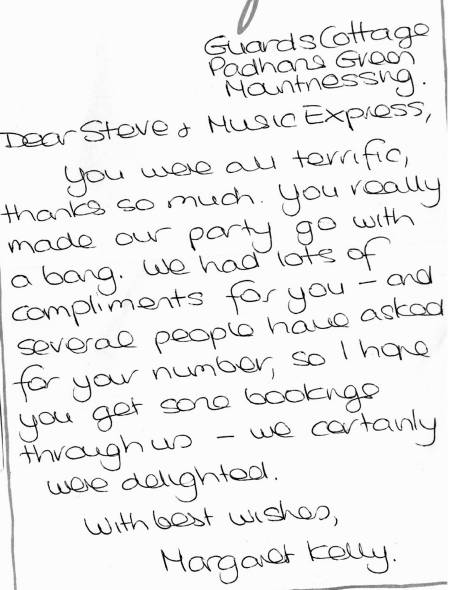 Guards Cottage
Padhans Green
Mountnessing.
Dear Steve & Music Express,
You were all terrific,
thanks so much. You really
made our party go with
a bang. We had lots of
compliments for you – and
several people have asked
for your number, so I hope
you get some bookings
through us – we certainly
were delighted.
With best wishes,
Margaret Kelly.